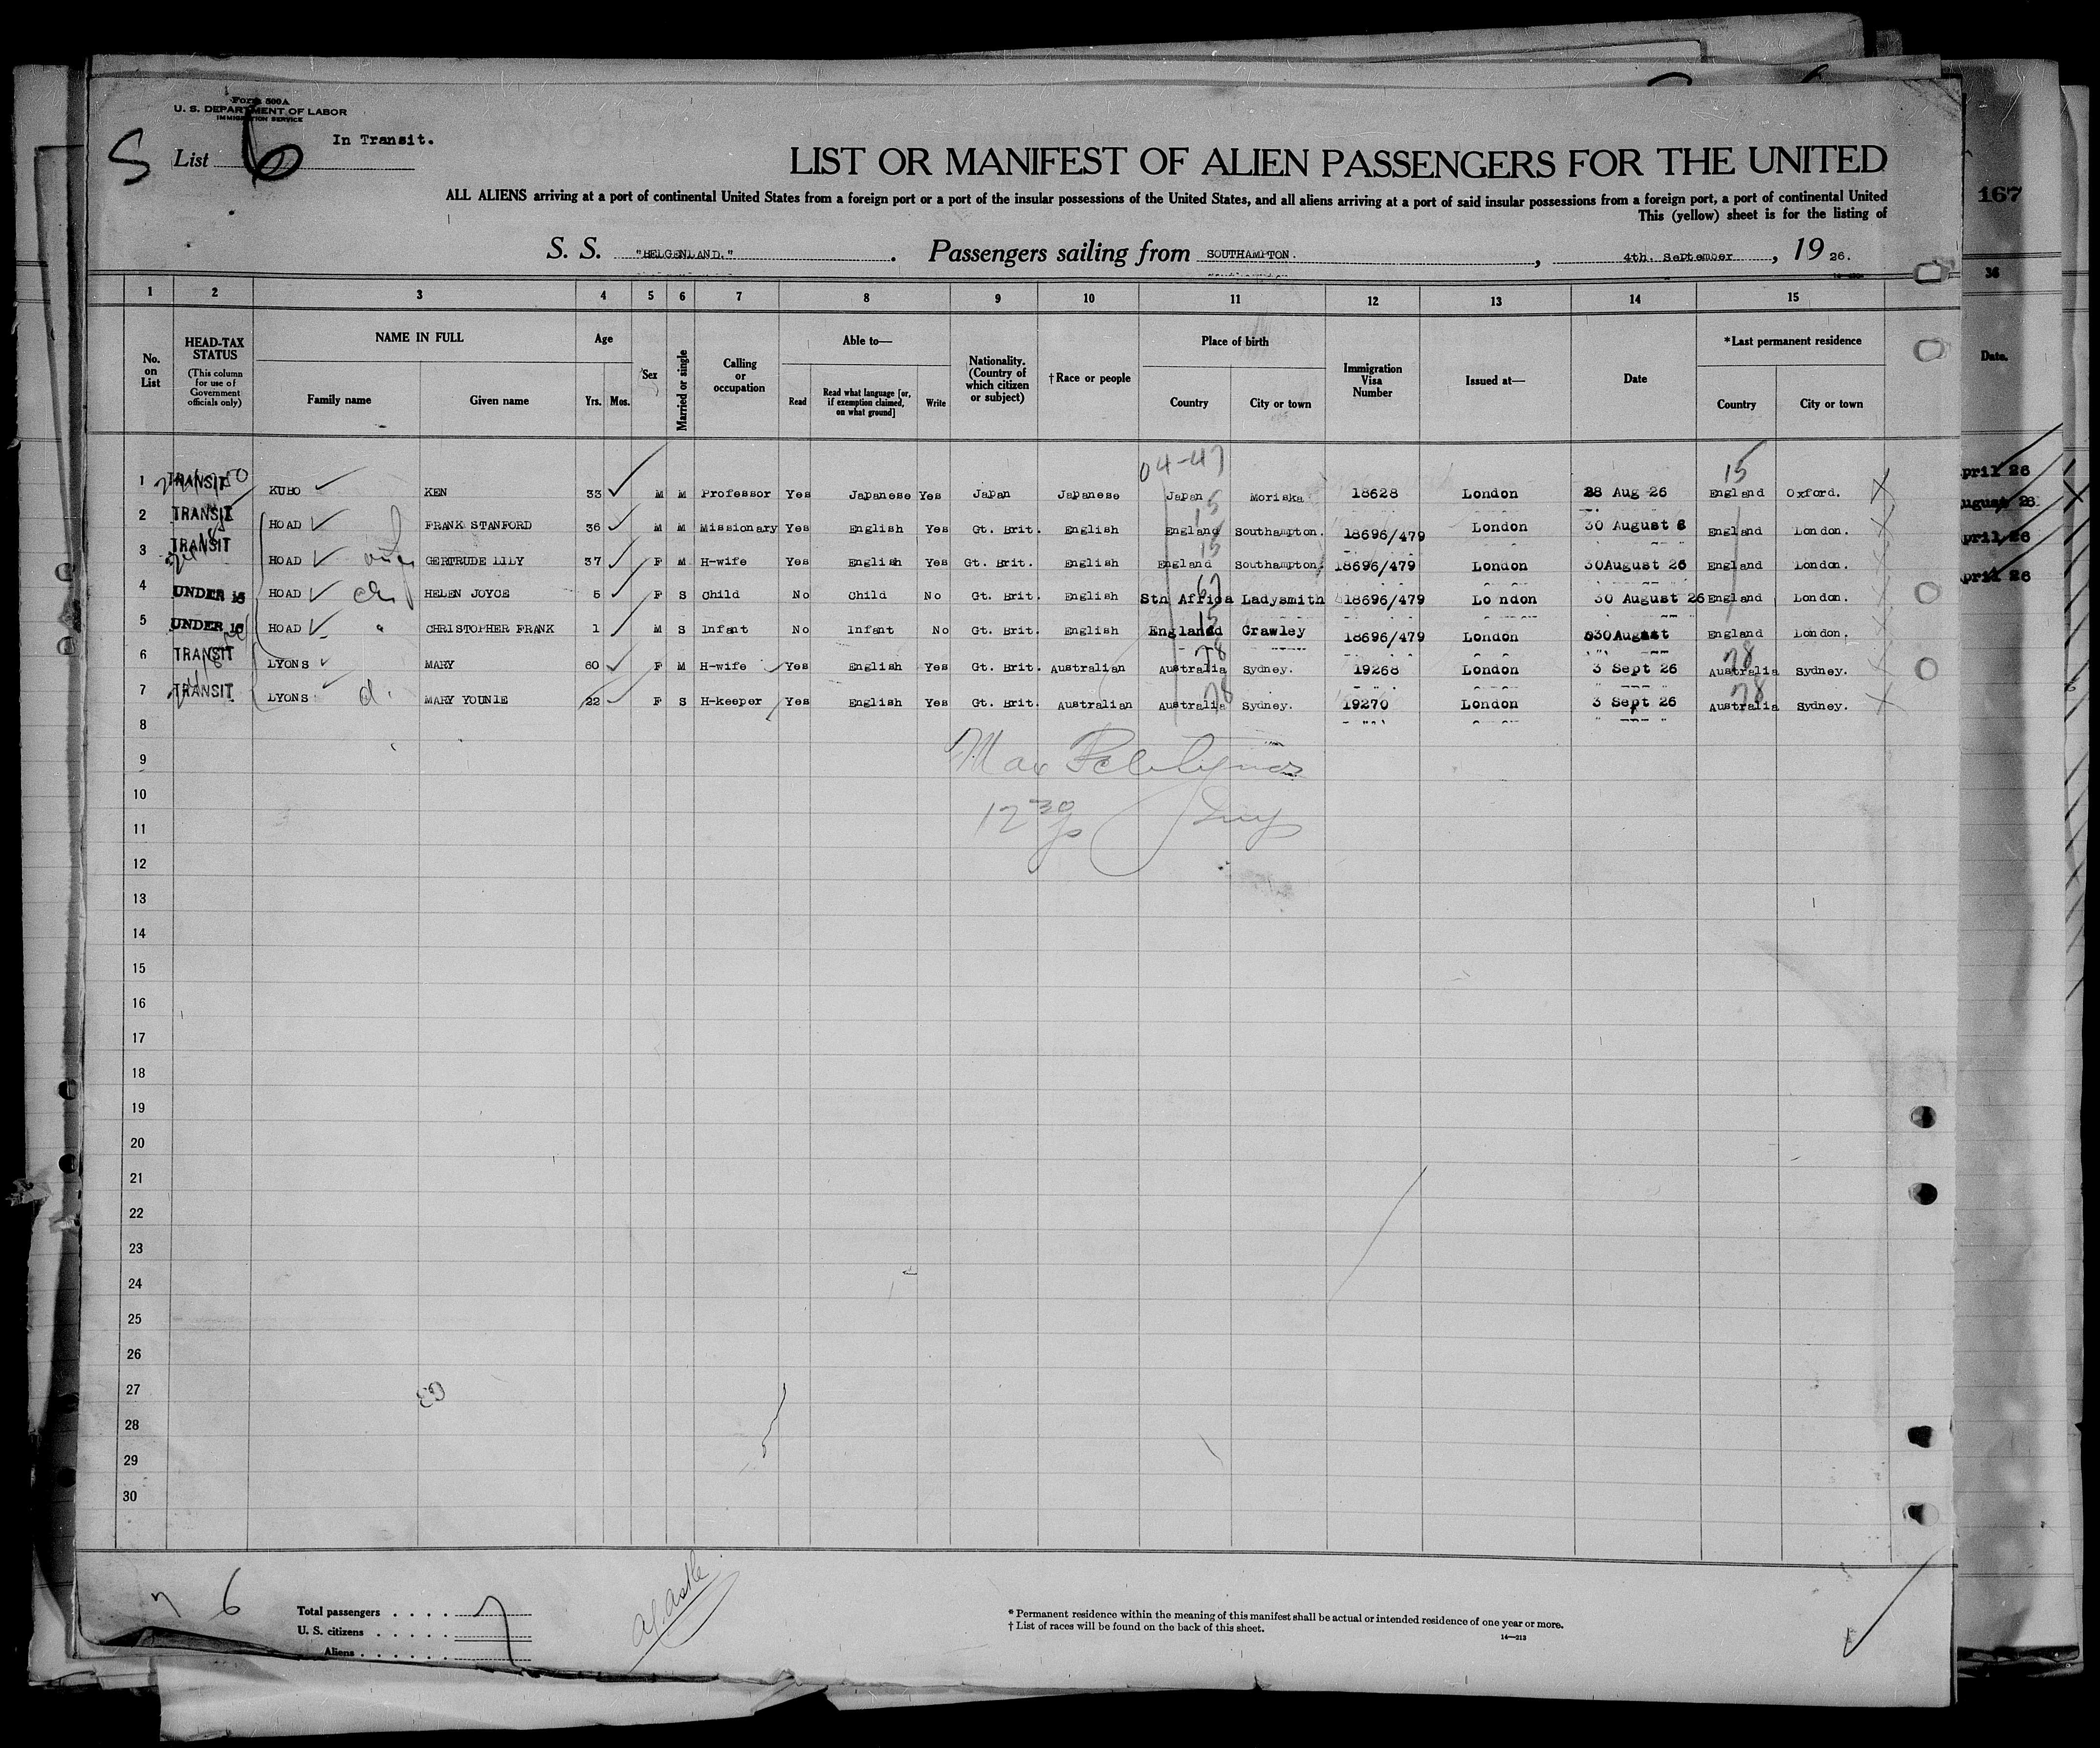 Form 500A
U. S. DEPARTMENT OF LABOR
IMMIGRATION SERVICE
In Transit.
S List 6
LIST OR MANIFEST OF ALIEN PASSENGERS FOR THE UNITED
ALL ALIENS arriving at a port of continental United States from a foreign port or a port of the insular possessions of the United States, and all aliens arriving at a port of said insular possessions from a foreign port, a port of continental United
This (yellow) sheet is for the listing of
167
S. S. "BELGENLAND." . Passengers sailing from SOUTHAMPTON. , 4th. September , 19 26.
36
1 2 3 4 5 6 7 8 9 10 11 12 13 14 15
No. on List
HEAD-TAX STATUS (This column for use of Government officials only)
NAME IN FULL
Family name Given name
Age
Yrs. Mos.
Sex
Married or single
Calling or occupation
Able to—
Read Read what language [or, if exemption claimed, on what ground] Write
Nationality. (Country of which citizen or subject)
†Race or people
Place of birth
Country City or town
Immigration Visa Number
Issued at—
Date
*Last permanent residence
Country City or town
Date.
04-47 15
1 TRANSIT KUBO KEN 33 M M Professor Yes Japanese Yes Japan Japanese Japan Moriska 18628 London 28 Aug 26 England Oxford.
15
2 TRANSIT HOAD FRANK STANFORD 36 M M Missionary Yes English Yes Gt. Brit. English England Southampton. 18696/479 London 30 August 6 England London.
15
3 TRANSIT HOAD wife GERTRUDE LILY 37 F M H-wife Yes English Yes Gt. Brit. English England Southampton. 18696/479 London 30August 26 England London.
67
4 UNDER 16 HOAD ch HELEN JOYCE 5 F S Child No Child No Gt. Brit. English Sth Africa Ladysmith 18696/479 London 30 August 26 England London.
15
5 UNDER 16 HOAD " CHRISTOPHER FRANK 1 M S Infant No Infant No Gt. Brit. English England Crawley 18696/479 London 30August England London.
78 78
6 TRANSIT LYONS MARY 60 F M H-wife Yes English Yes Gt. Brit. Australian Australia Sydney. 19268 London 3 Sept 26 Australia Sydney.
78 78
7 TRANSIT LYONS d. MARY YOUNIE 22 F S H-keeper Yes English Yes Gt. Brit. Australian Australia Sydney. 19270 London 3 Sept 26 Australia Sydney.
pril 26
ugust 26
pril 26
pril 26
8
9
10
11 12 30
12
13
14
15
16
17
18
19
20
21
22
23
24
25
26
27
28
29
30
7 6
Total passengers . . . . 7
U. S. citizens . . . . .
Aliens . . . . . .
* Permanent residence within the meaning of this manifest shall be actual or intended residence of one year or more.
† List of races will be found on the back of this sheet.
14—213